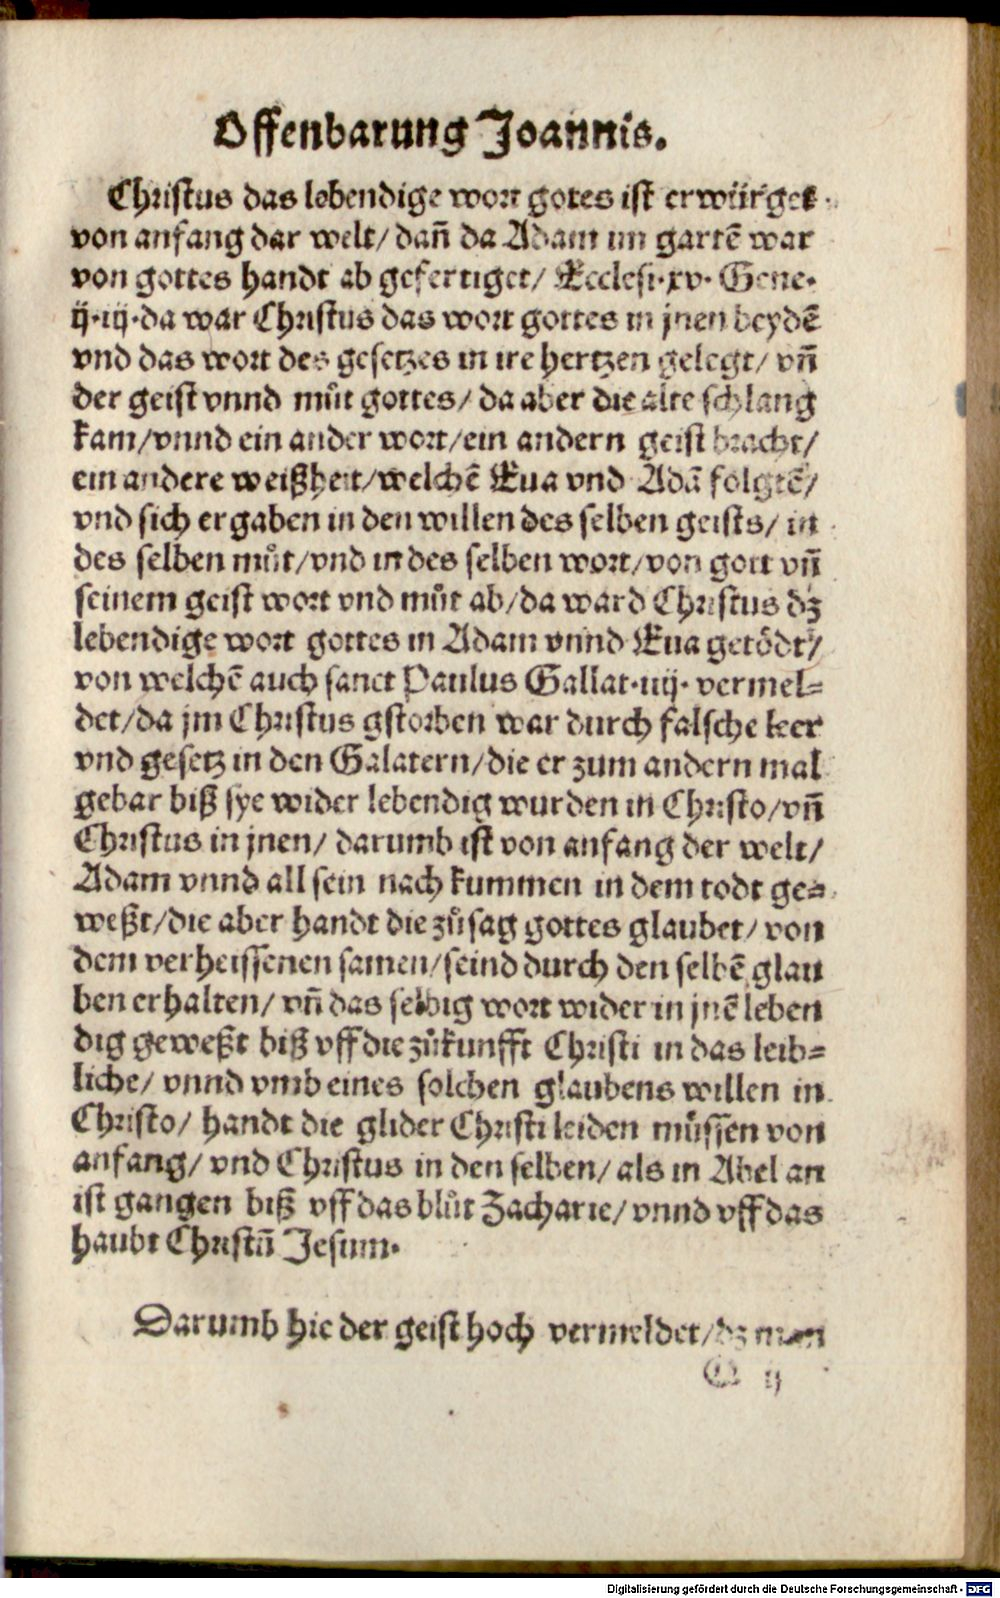 Offenbarung Joannis.
Christus das lebendige wort gotes ist erwürget
von anfang dar welt/ dañ da Adam im gartē war
von gottes handt ab gefertiget/ Ecclesi·xv· Gene·
ij·iij·da war Christus das wort gottes in jnen beydē
vnd das wort des gesetzes in ire hertzen gelegt/ vñ
der geist vnnd můt gottes/ da aber die alte schlang
kam/vnnd ein ander wort/ein andern geist bracht/
ein andere weißheit/welchē Eua vnd Adā folgtē/
vnd sich ergaben in den willen des selben geists/ in
des selben můt/vnd in des selben wort/von gott vñ
seinem geist wort vnd můt ab/da ward Christus dz
lebendige wort gottes in Adam vnnd Eua getödt/
von welchē auch sanct Paulus Gallat·iiij· vermel⸗
det/da jm Christus gstorben war durch falsche leer
vnd gesetz in den Galatern/die er zum andern mal
gebar biß sye wider lebendig wurden in Christo/vñ
Christus in jnen/ darumb ist von anfang der welt/
Adam vnnd all sein nach kummen in dem todt ge⸗
weßt/die aber handt die zůsag gottes glaubet/ von
dem verheissenen samen/seind durch den selbē glau
ben erhalten/ vñ das selbig wort wider in jnē leben
dig geweßt biß vff die zůkunfft Christi in das leib⸗
liche/ vnnd vmb eines solchen glaubens willen in
Christo/ handt die glider Christi leiden můssen von
anfang/ vnd Christus in den selben/ als in Abel an
ist gangen biß vff das blůt Zacharie/ vnnd vff das
haubt Christū Jesum·
Darumb hie der geist hoch vermeldet/dz man
ij
Digitalisierung gefördert durch die Deutsche Forschungsgemeinschaft - DFG